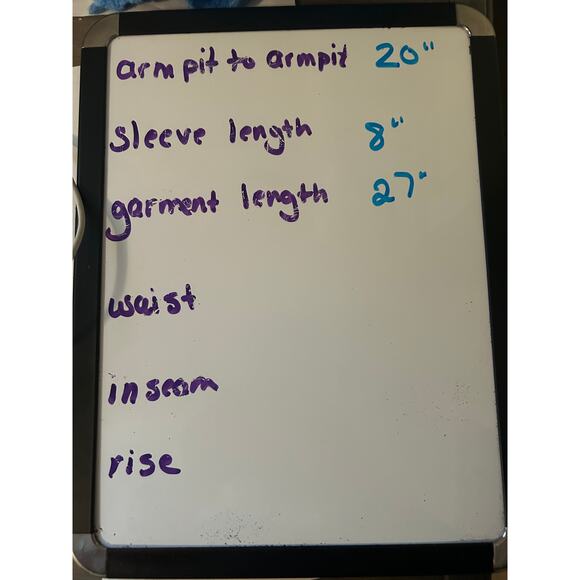 armpit to armpit 20"
sleeve length 8"
garment length 27"
waist
inseam
rise